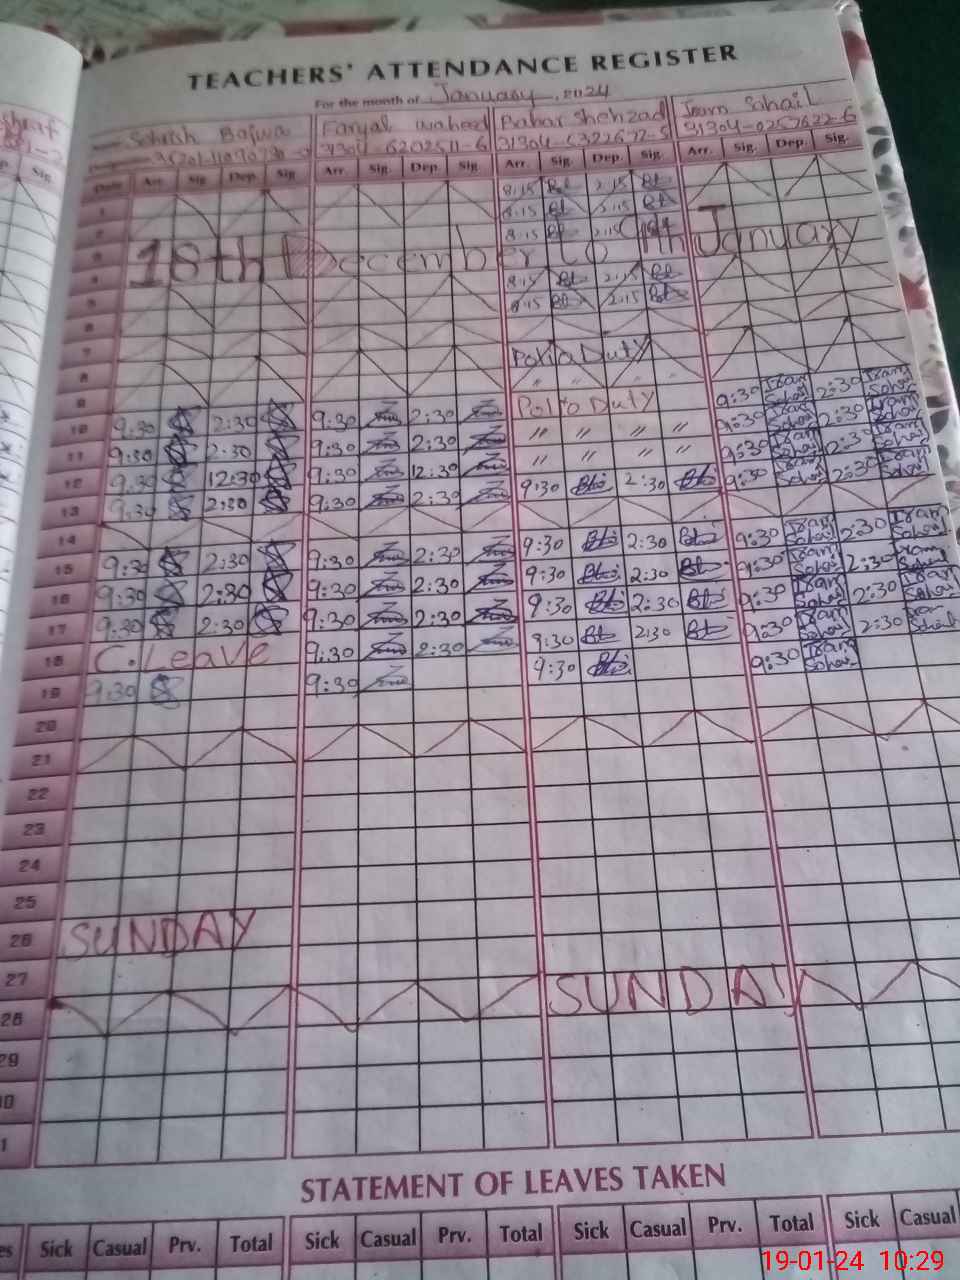 TEACHERS' ATTENDANCE REGISTER
For the month of January, 2024
Sehrish Bajwa Faryal waheed Bahar Shehzad Iram Sohail
31304-6202511-6 31304-5322677-5 31304-0257622-6
Date Arr. Sig. Dep. Sig. Arr. Sig. Dep. Sig. Arr. Sig. Dep. Sig. Arr. Sig. Dep. Sig.
1 8:15 2:15
2 8:15 2:15
3 8:15 2:15
18th December to 9th January
4 8:15 2:15
5 8:15 2:15
6
7
8 Polio Duty
9 " " " "
10 9:30 2:30 9:30 2:30 Polio Duty 9:30 Iram Sohail 2:30 Iram Sohail
11 9:30 2:30 9:30 2:30 " " " " 9:30 Iram Sohail 2:30 Iram Sohail
12 9:30 12:30 9:30 12:30 " " " " 9:30 Iram Sohail 12:30 Iram Sohail
13 9:30 2:30 9:30 2:30 9:30 2:30 9:30 Iram Sohail 2:30 Iram Sohail
14
15 9:30 2:30 9:30 2:30 9:30 2:30 9:30 Iram Sohail 2:30 Iram Sohail
16 9:30 2:30 9:30 2:30 9:30 2:30 9:30 Iram Sohail 2:30 Iram Sohail
17 9:30 2:30 9:30 2:30 9:30 2:30 9:30 Iram Sohail 2:30 Iram Sohail
18 C. Leave 9:30 2:30 9:30 2:30 9:30 Iram Sohail 2:30 Iram Sohail
19 9:30 9:30 9:30 9:30 Iram Sohail
20
21
22
23
24
25
26 SUNDAY
27
28 SUNDAY
29
30
31
STATEMENT OF LEAVES TAKEN
Sick Casual Prv. Total Sick Casual Prv. Total Sick Casual Prv. Total Sick Casual
19-01-24 10:29